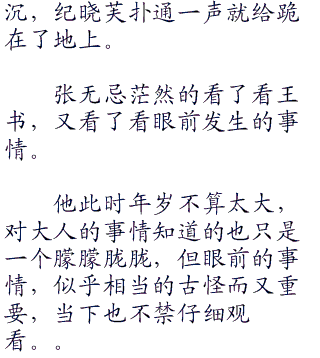 沉，纪晓芙扑通一声就给跪
在了地上。
张无忌茫然的看了看王
书，又看了看眼前发生的事
情。
他此时年岁不算太大，
对大人的事情知道的也只是
一个朦朦胧胧，但眼前的事
情，似乎相当的古怪而又重
要，当下也不禁仔细观
看。。